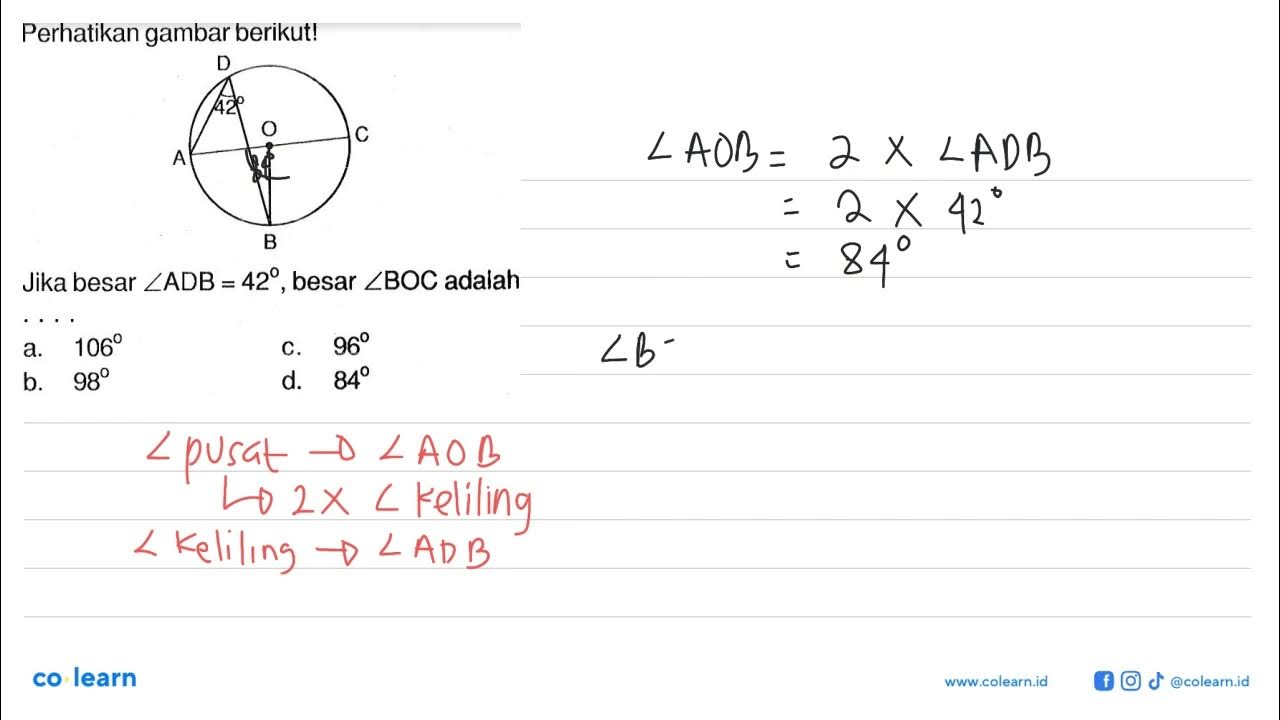 Perhatikan gambar berikut!
D
42°
O
C
A
B
Jika besar ∠ADB = 42°, besar ∠BOC adalah
. . . .
a. 106° c. 96°
b. 98° d. 84°
∠AOB = 2 × ∠ADB
= 2 × 42°
= 84°
∠B-
∠pusat → ∠AOB
↳ 2× ∠keliling
∠keliling → ∠ADB
co learn
www.colearn.id @colearn.id